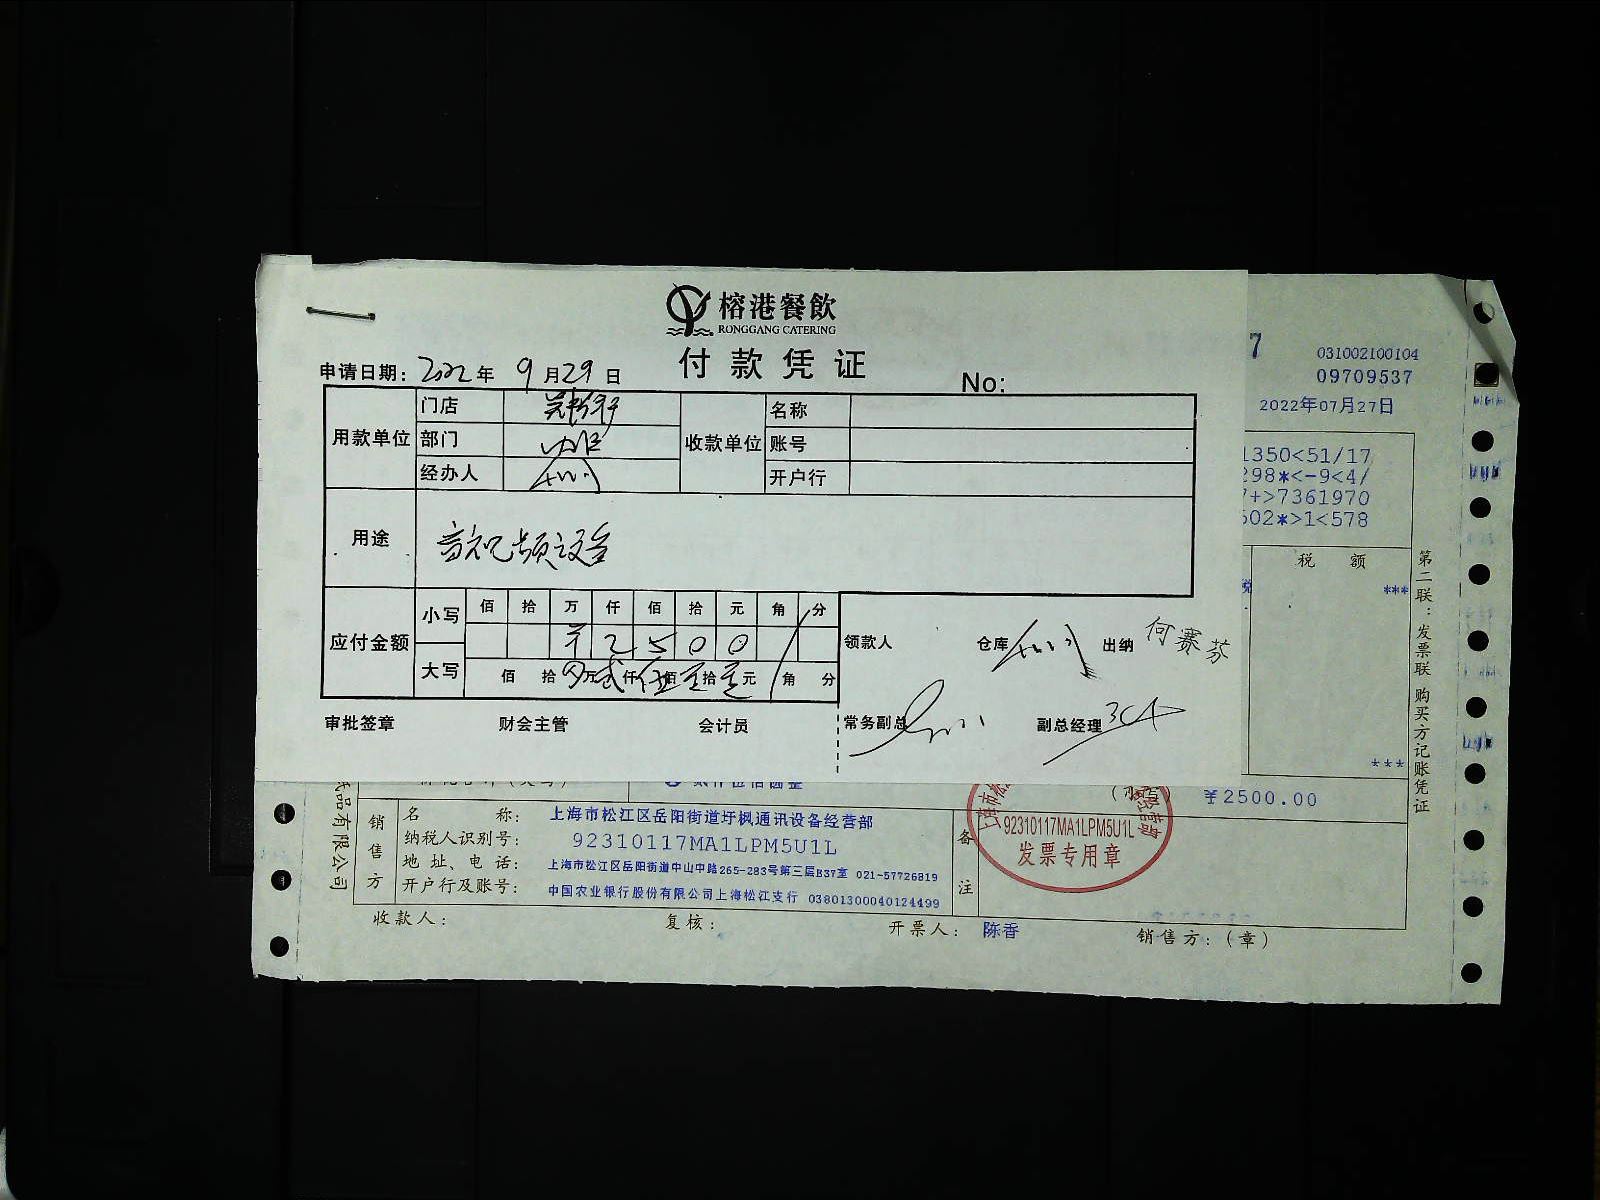 榕港餐飲
RONGGANG CATERING
付款凭证
申请日期: 2022年 9月29日
No:
用款单位
门店
部门
经办人
收款单位
名称
账号
开户行
用途
音视频设备
应付金额
小写
佰 拾 万 仟 佰 拾 元 角 分
¥ 2 5 0 0
大写
佰 拾 万 贰仟 伍佰 拾 元 角 分
领款人
仓库
出纳 何赛芬
审批签章
财会主管
会计员
常务副总
副总经理
7
031002100104
09709537
2022年07月27日
1350<51/17
298*<-9<4/
7+>7361970
602*>1<578
税 额
***
***
第二联:发票联 购买方记账凭证
¥2500.00
纸品有限公司
销售方
名 称: 上海市松江区岳阳街道圩枫通讯设备经营部
纳税人识别号: 92310117MA1LPM5U1L
地址、电话: 上海市松江区岳阳街道中山中路265-283号第三层B37室 021-57726819
开户行及账号: 中国农业银行股份有限公司上海松江支行 03801300040124499
备注
92310117MA1LPM5U1L
发票专用章
收款人:
复核:
开票人: 陈香
销售方:(章)